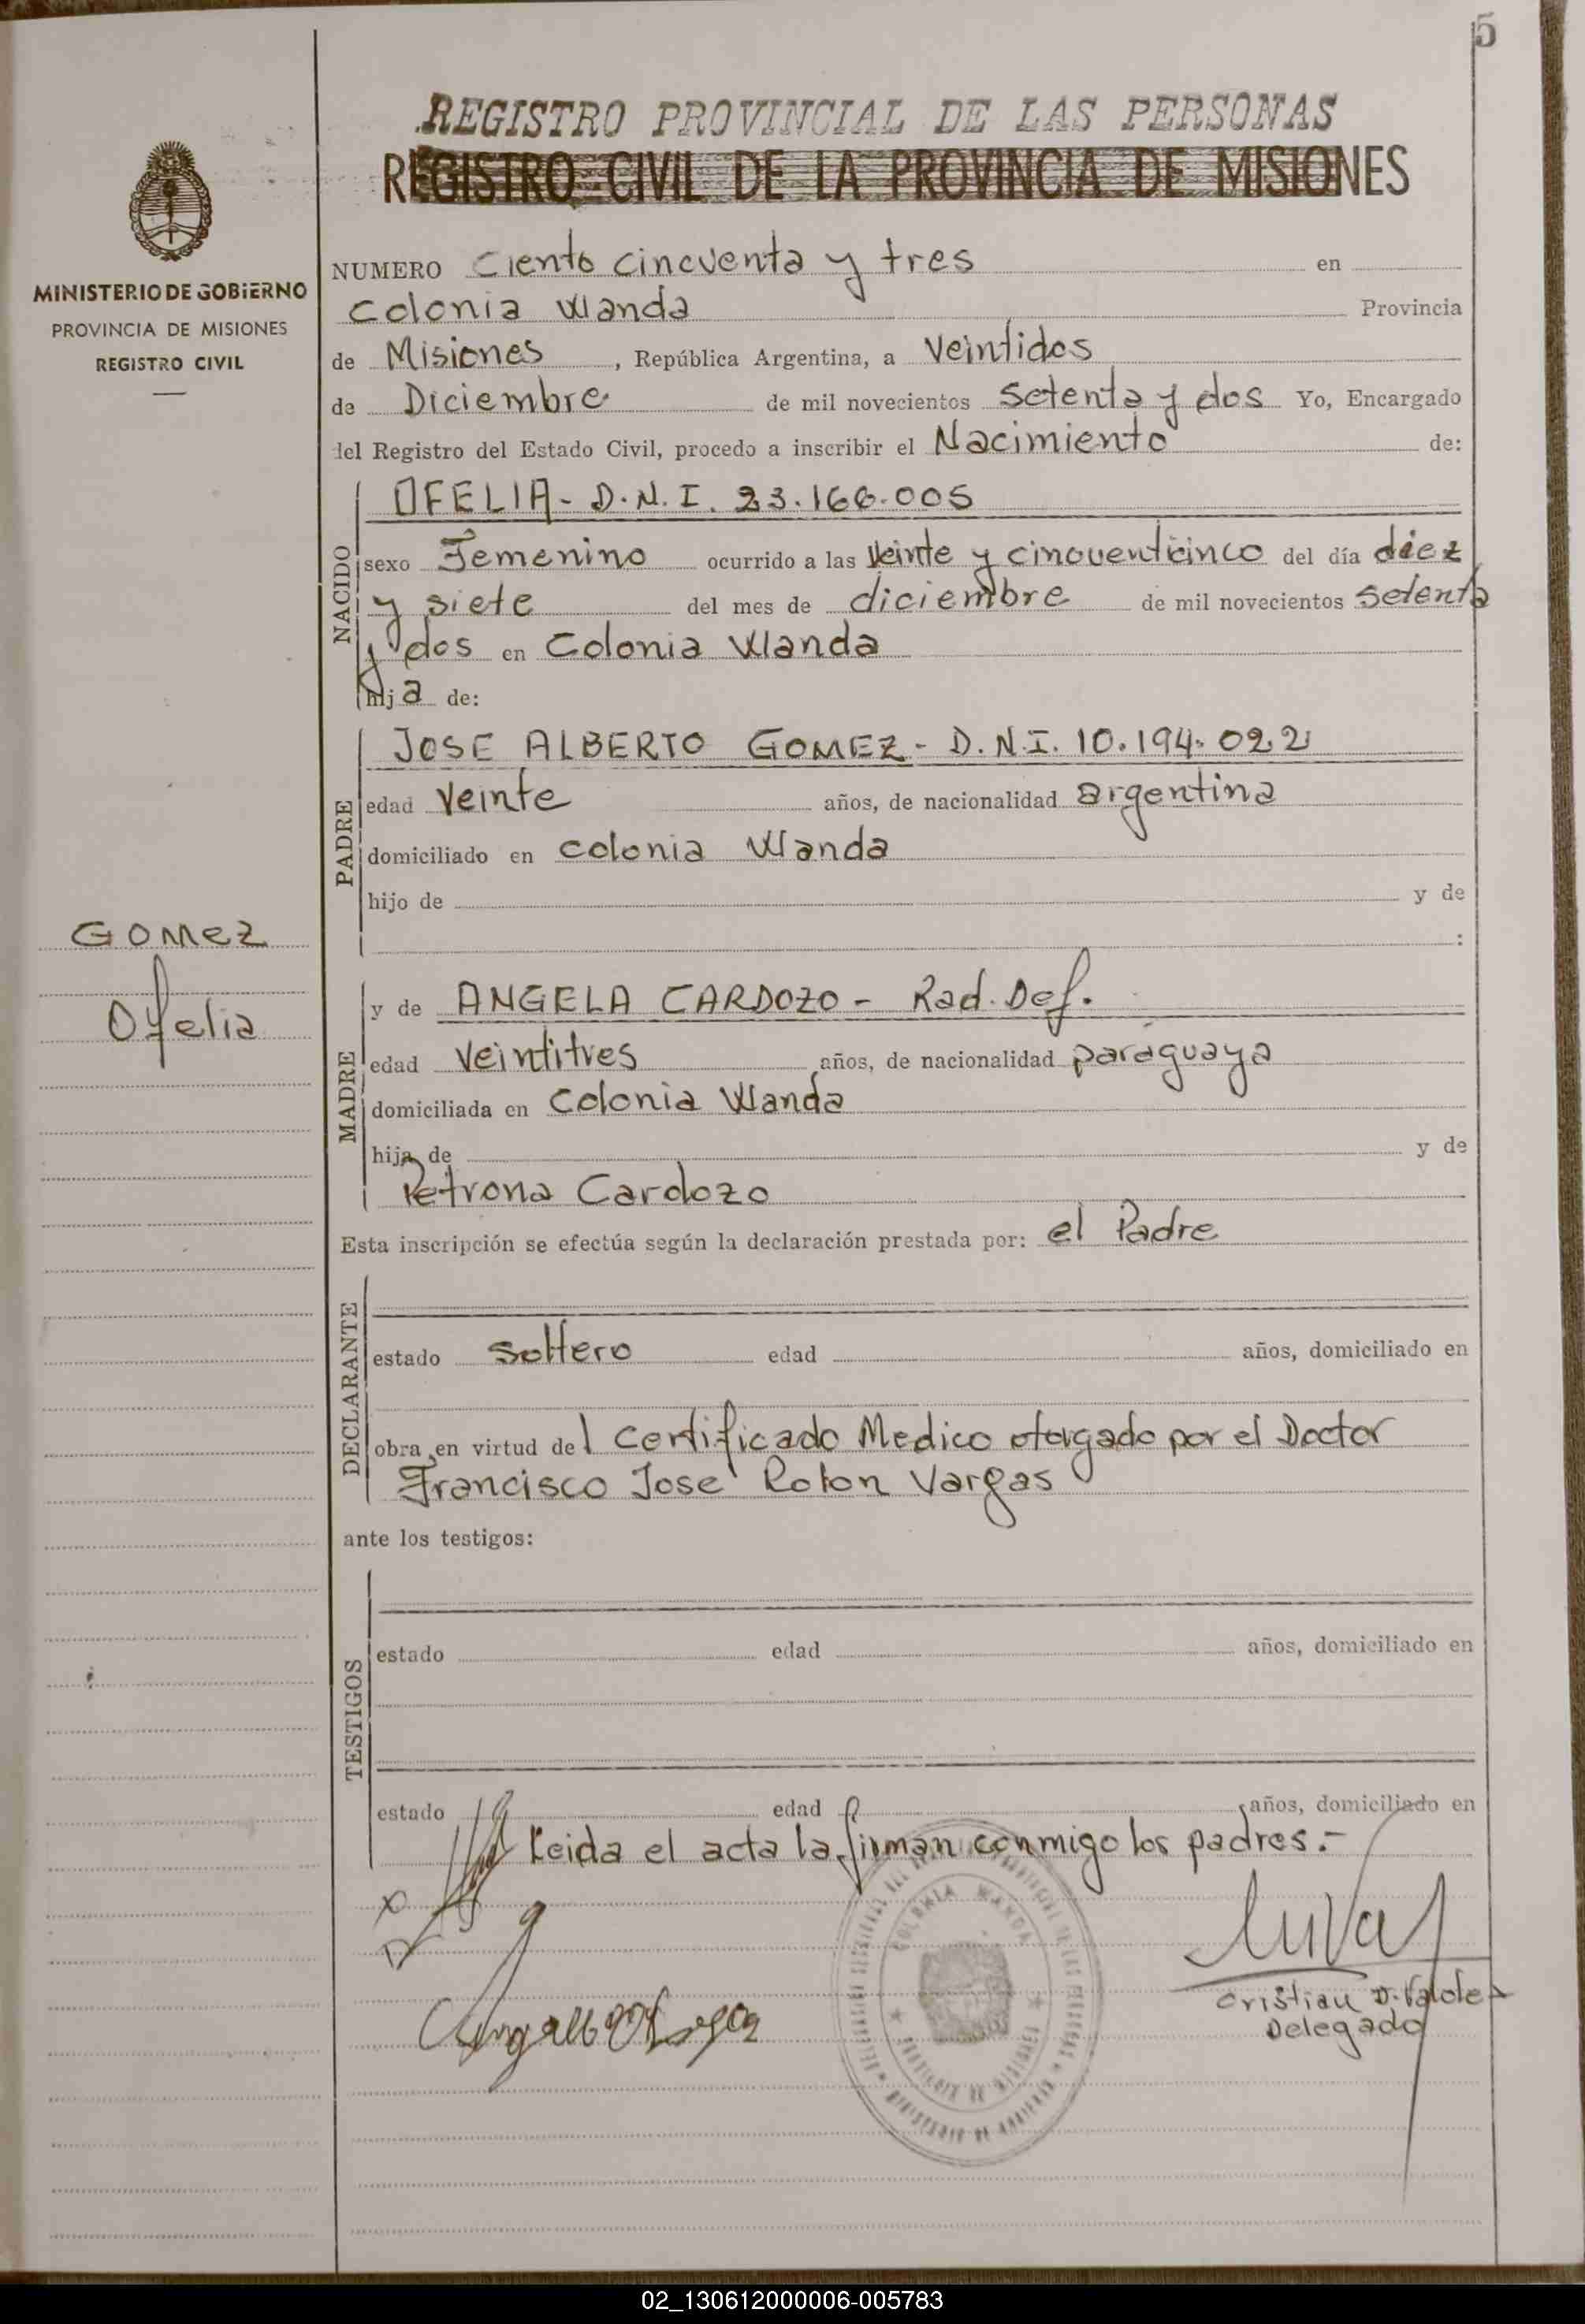 5
REGISTRO PROVINCIAL DE LAS PERSONAS
REGISTRO CIVIL DE LA PROVINCIA DE MISIONES
MINISTERIO DE GOBIERNO
PROVINCIA DE MISIONES
REGISTRO CIVIL
NUMERO Ciento cincuenta y tres en
Colonia Wanda Provincia
de Misiones, República Argentina, a Veintidos
de Diciembre de mil novecientos setenta y dos Yo, Encargado
del Registro del Estado Civil, procedo a inscribir el Nacimiento de:
NACIDO
OFELIA - D.N.I. 23.166.005
sexo Femenino ocurrido a las Veinte y cincuenticinco del día diez
y siete del mes de diciembre de mil novecientos setenta
y dos en Colonia Wanda
hija de:
PADRE
JOSE ALBERTO GOMEZ - D.N.I. 10.194.022
edad Veinte años, de nacionalidad argentina
domiciliado en colonia Wanda
hijo de y de
:
Gomez
Ofelia
MADRE
y de ANGELA CARDOZO - Rad. Def.
edad Veintitres años, de nacionalidad paraguaya
domiciliada en Colonia Wanda
hija de y de
Petrona Cardozo
Esta inscripción se efectúa según la declaración prestada por: el Padre
DECLARANTE
estado soltero edad años, domiciliado en
obra en virtud del Certificado Medico otorgado por el Doctor
Francisco Jose Rolon Vargas
ante los testigos:
TESTIGOS
estado edad años, domiciliado en
estado edad años, domiciliado en
Leida el acta la firman conmigo los padres.-
x
COLONIA WANDA
PROVINCIA DE MISIONES
Cristian D. Valdez
Delegado
02_130612000006-005783